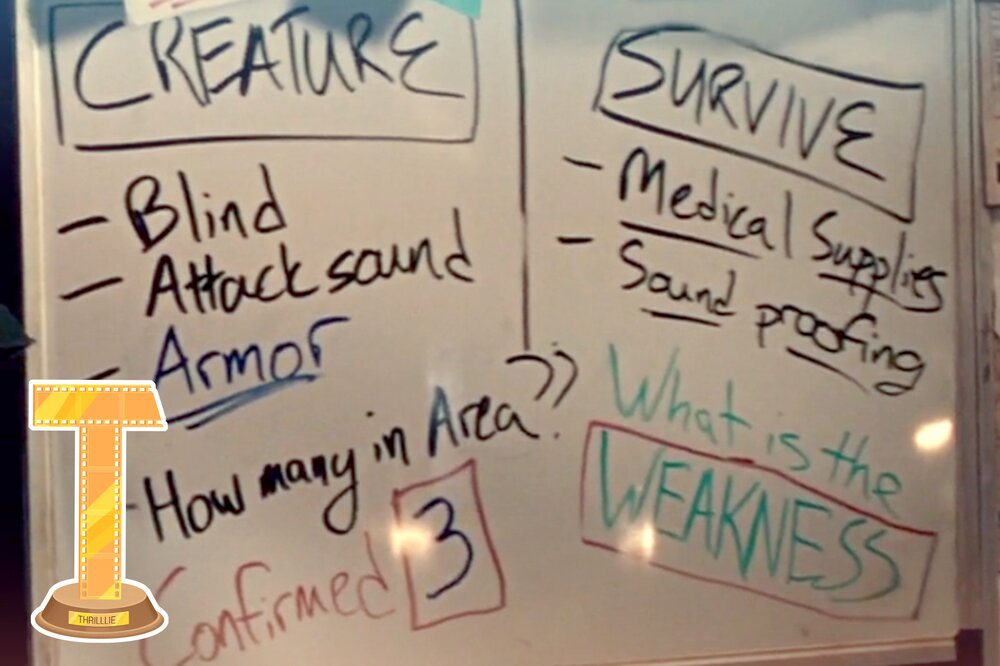 CREATURE
- Blind
- Attack sound
- Armor
- How many in Area??
Confirmed 3
SURVIVE
- Medical Supplies
- Sound proofing
What is the
WEAKNESS
THRILLLIE